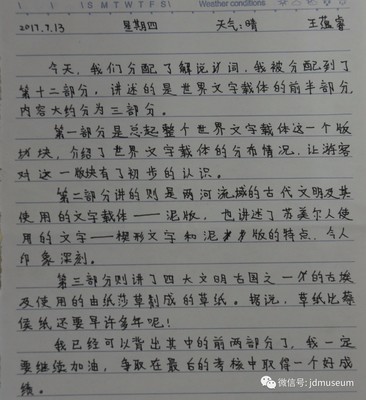 SMTWTFS Weather conditions
2017.7.13 星期四 天气:晴 王蕴睿
今天,我们分配了解说词,我被分配到了
第十二部分,讲述的是世界文字载体的前半部分,
内容大约分为三部分。
第一部分是总起整个世界文字载体这一个版
块,介绍了世界文字载体的分布情况,让游客
对这一版块有了初步的认识。
第二部分讲的则是两河流域的古代文明及其
使用的文字载体——泥版,也讲述了苏美尔人使
用的文字——楔形文字和泥版的特点,令人
印象深刻。
第三部分则讲了四大文明古国之一的古埃
及使用的由纸莎草制成的草纸。据说,草纸比蔡
侯纸还要早许多年呢!
我已经可以背出其中的前两部分了,我一定
要继续加油,争取在最后的考核中取得一个好成
绩。
微信号: jdmuseum